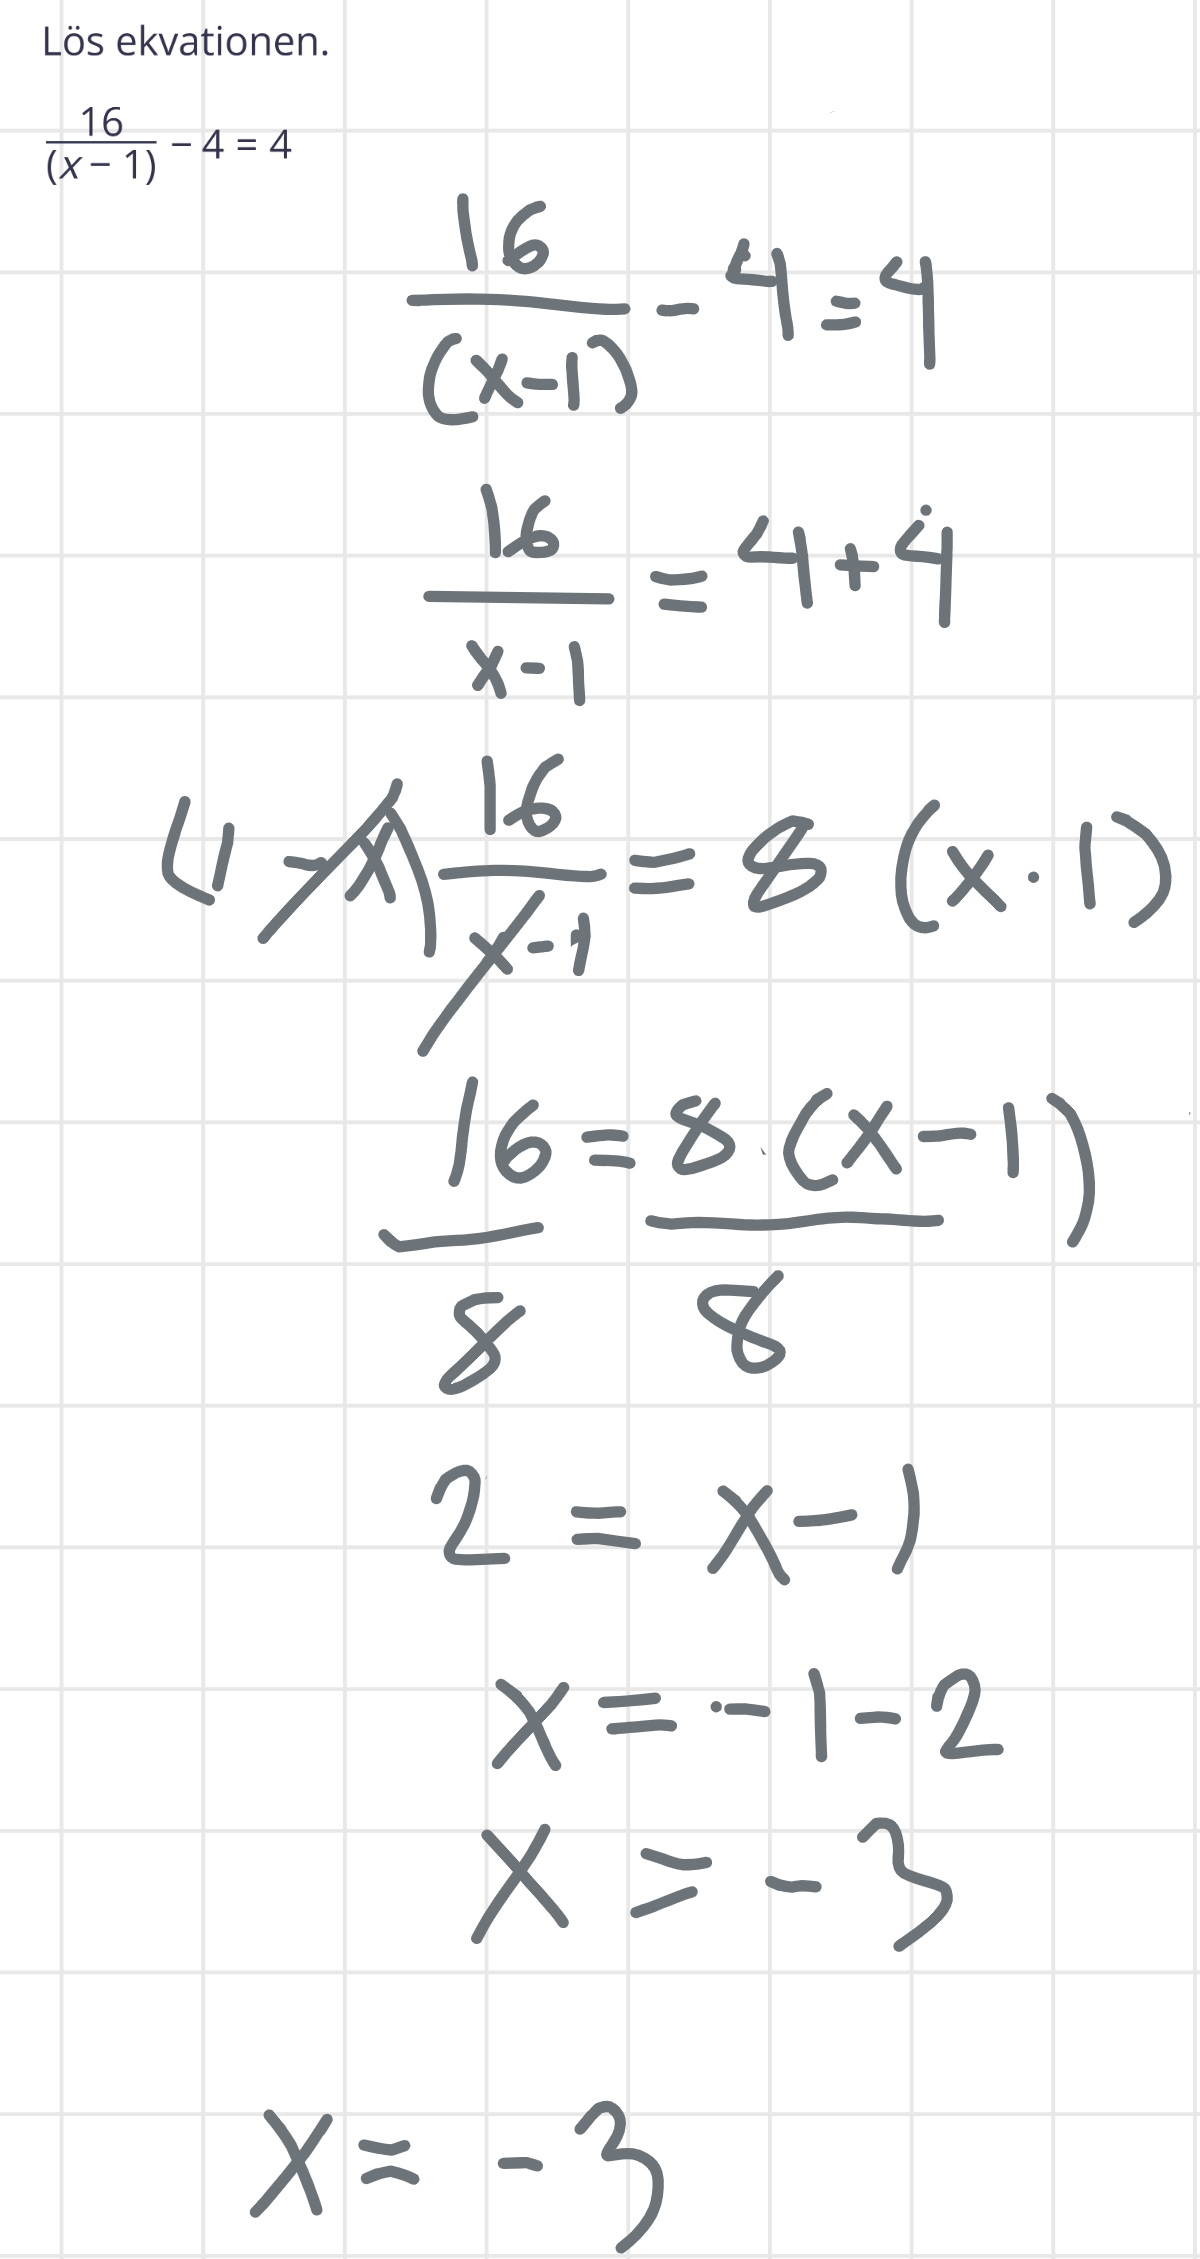 Lös ekvationen.
16/(x − 1) − 4 = 4
16/(x-1) - 4 = 4
16/x-1 = 4+4
16/x-1 = 8 (x · 1)
16/8 = 8·(x-1)/8
2 = x-1
x = -1-2
x = -3
x = -3